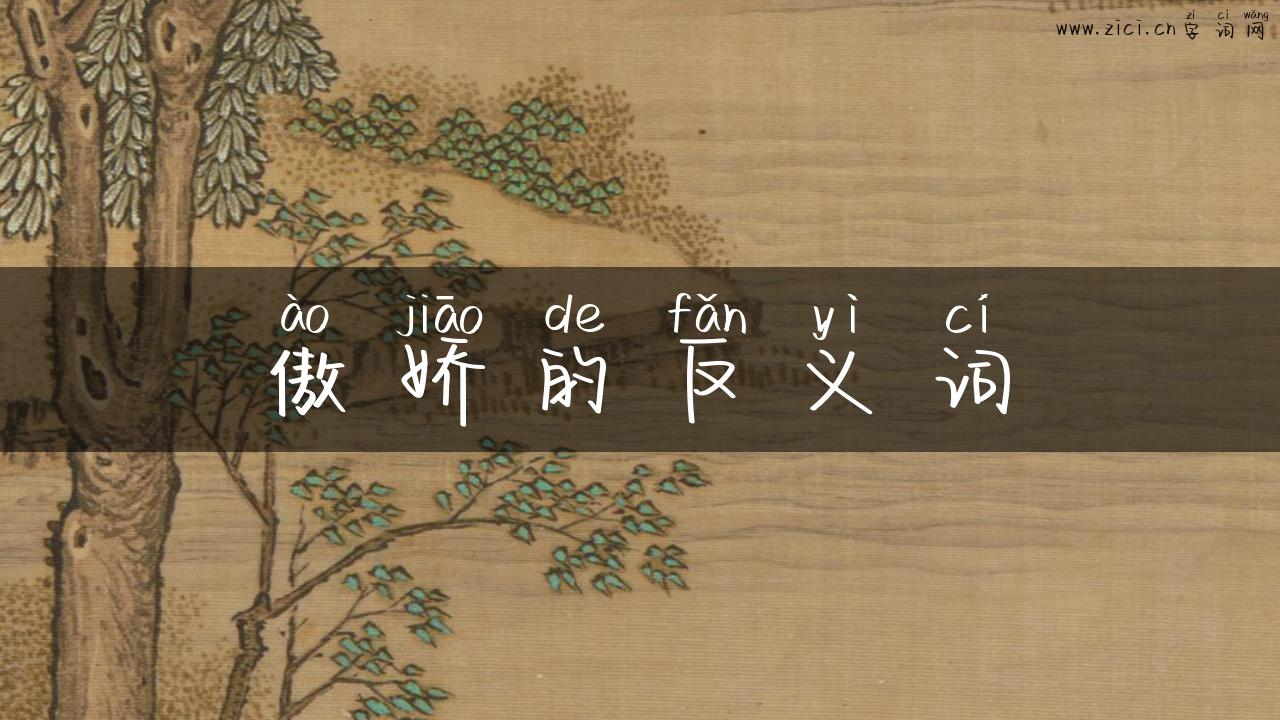 zì cí wǎng
www.zici.cn 字词网
ào jiāo de fǎn yì cí
傲娇的反义词